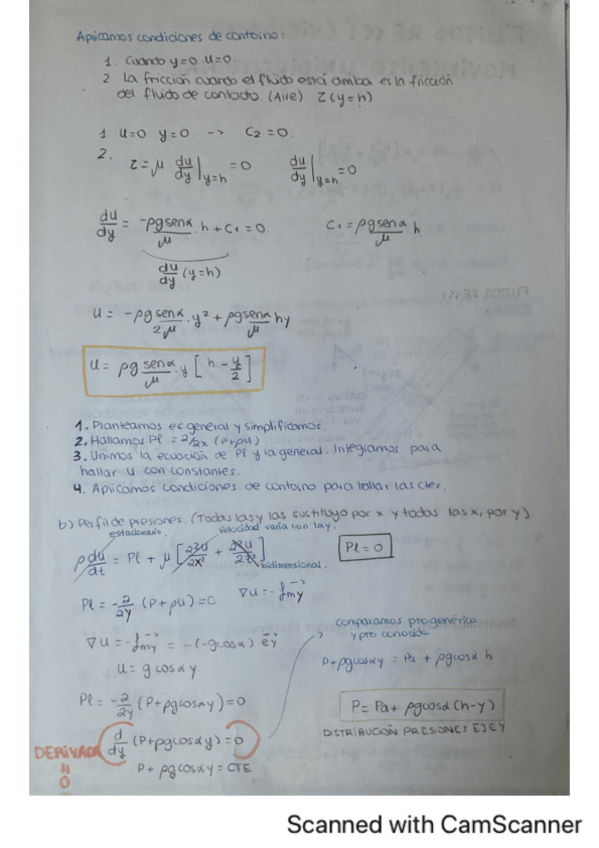 Aplicamos condiciones de contorno:
1. Cuando y=0 u=0
2 La fricción cuando el fluido está arriba es la fricción
del fluido de contacto (Aire) τ(y=h)
1 u=0 y=0 -> C2=0.
2. τ=μ du/dy|y=h =0 du/dy|y=h =0
du/dy = -ρg senα/μ · h + C1 = 0 C1 = ρg senα/μ · h
du/dy (y=h)
u = -ρg senα/2μ · y² + ρg senα/μ hy
u = ρg senα/μ · y [h - y/2]
1. Planteamos ec general y simplificamos.
2. Hallamos Pl = ∂/∂x (P+ρU)
3. Unimos la ecuación de Pl y la general. Integramos para
hallar u con constantes.
4. Aplicamos condiciones de contorno para hallar las ctes.
b) Perfil de presiones. (Todas las y las sustituyo por x y todas las x, por y)
estacionario. velocidad varía con la y.
ρ du/dt = Pl + μ [∂²u/∂x² + ∂²u/∂z²] Pl = 0
bidimensional.
Pl = -∂/∂y (P+ρU) = 0 ∇U = -fmy
∇U = -fmy = -(-g cosα) ey
U = g cosα y
Pl = -∂/∂y (P+ρg cosα y) = 0
d/dy (P+ρg cosα y) = 0
DERIVADA = 0
P + ρg cosα y = CTE
comparamos pto genérico
y pto conocido
P+ρg cosα y = Pa + ρg cosα h
P = Pa + ρg cosα (h-y)
DISTRIBUCIÓN PRESIONES EJE Y
Scanned with CamScanner